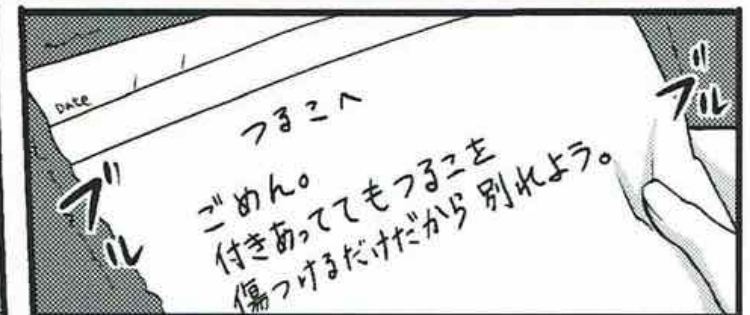 Date / /
つるこへ
ごめん。
付きあっててもつるこを
傷つけるだけだから 別れよう。
ブル
ブル